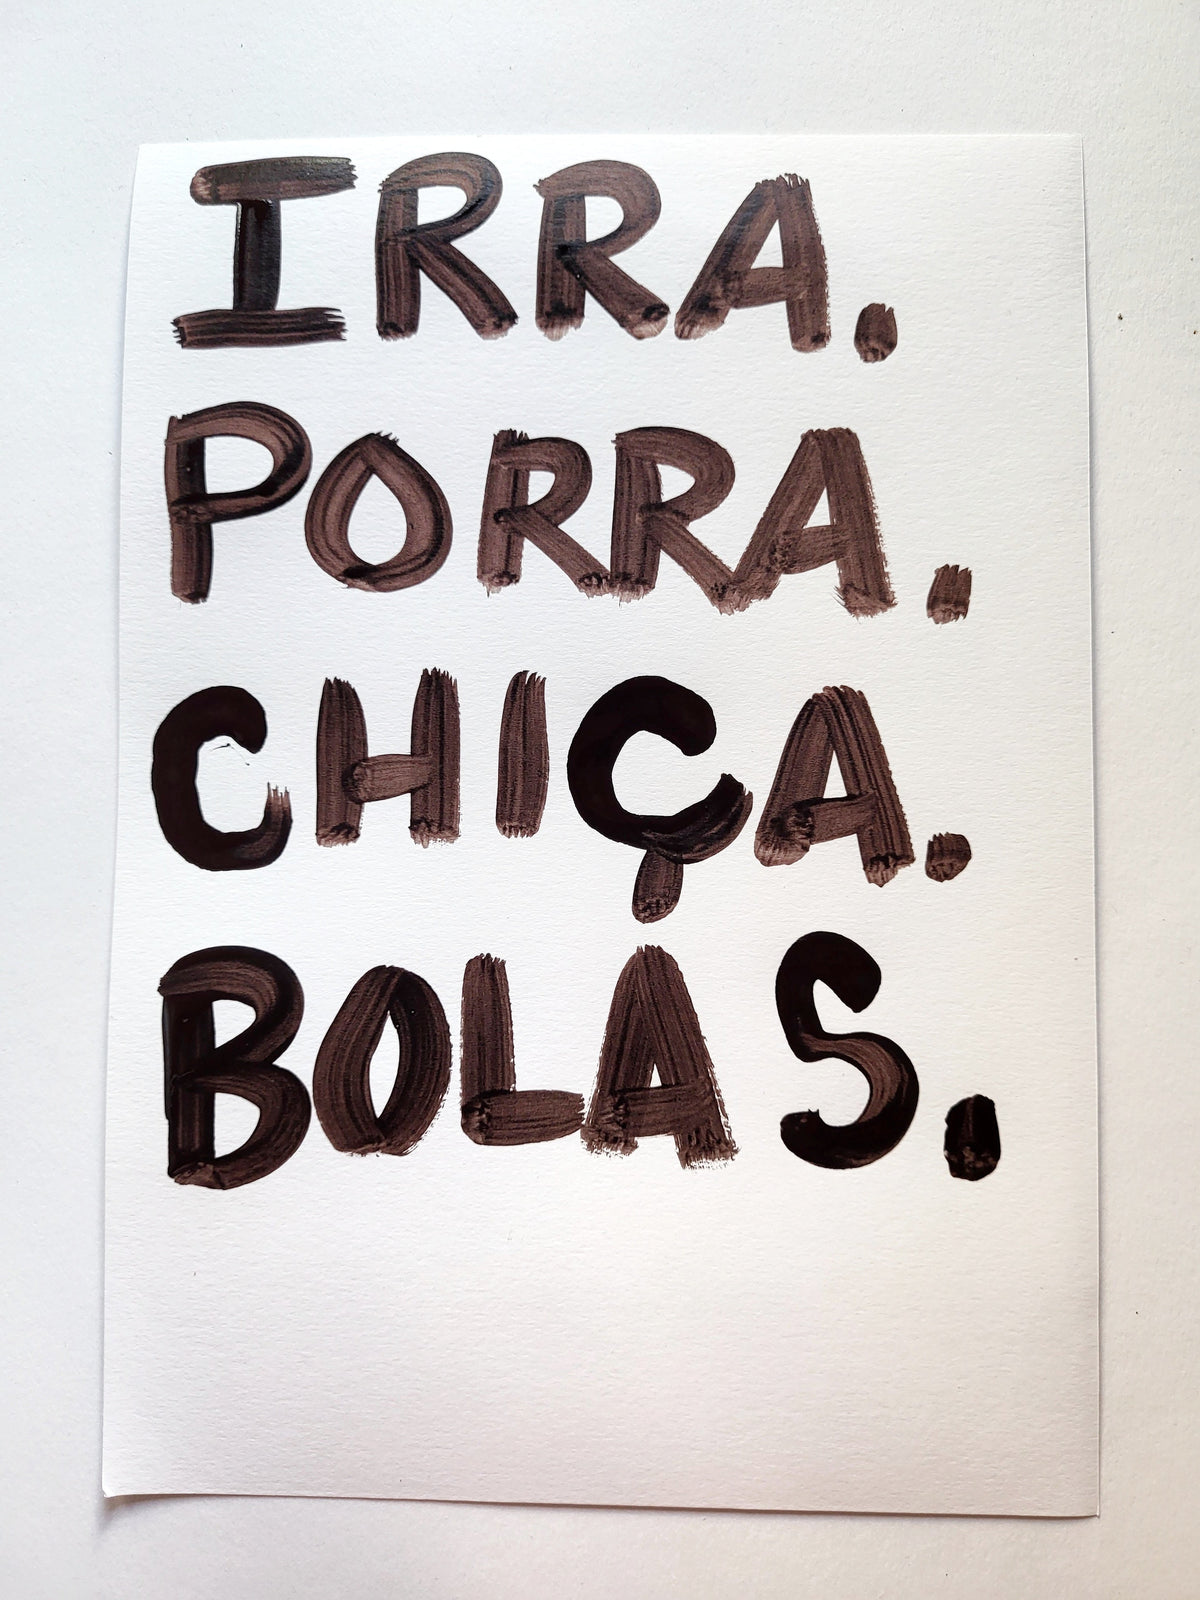 IRRA.
PORRA.
CHIÇA.
BOLAS.